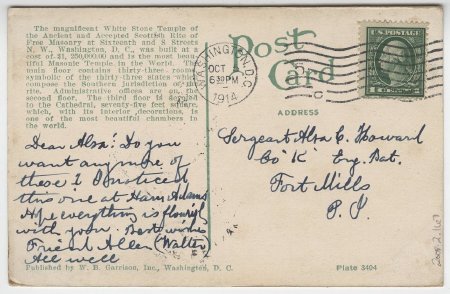 The magnificent White Stone Temple of
the Ancient and Accepted Scottish Rite of
Free Masonry at Sixteenth and S Streets
N. W., Washington, D. C., was built at a
cost of $1,250,000 and is the most beau-
tiful Masonic Temple in the World. The
main floor contains thirty-three rooms
symbolic of the thirty-three states which
compose the Southern jurisdiction of the
rite. Administrative offices are on the
second floor. The third floor is devoted
to the Cathedral, seventy-five feet square,
which, with its interior decorations, is
one of the most beautiful chambers in
the world.
Dear Alva: Do you
want any more of
these? I noticed
this one at Ham Adams
Hope everything is flourish
with you. Best wishes
Friend Allen (Walter
All well
Published by W. B. Garrison, Inc., Washington, D. C.
Post
Card
WASHINGTON, D.C.
OCT
6 30PM
1914
U.S. POSTAGE
1
ADDRESS
Sergeant Alva C. Howard
Co "K" Eng. Bat.
Fort Mills
P. I.
Plate 3404